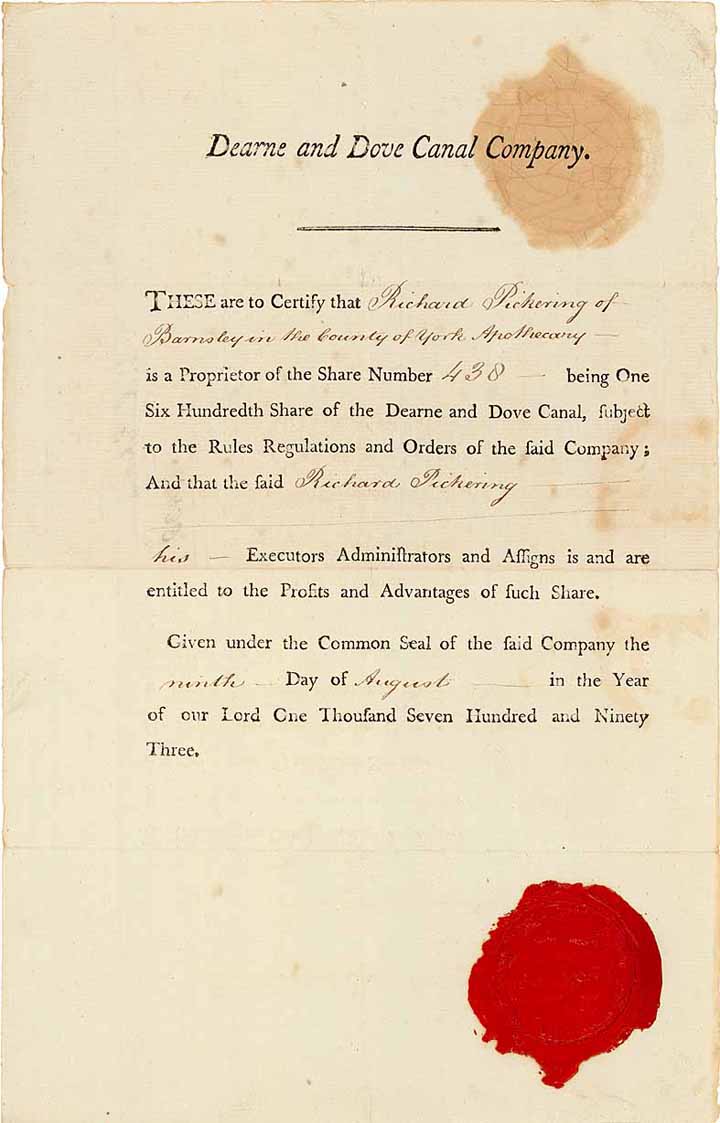 Dearne and Dove Canal Company.
THESE are to Certify that Richard Pickering of
Barnsley in the County of York Apothecary —
is a Proprietor of the Share Number 438 — being One
Six Hundredth Share of the Dearne and Dove Canal, ſubject
to the Rules Regulations and Orders of the ſaid Company;
And that the ſaid Richard Pickering
his — Executors Adminiſtrators and Aſſigns is and are
entitled to the Profits and Advantages of ſuch Share.
Given under the Common Seal of the ſaid Company the
ninth — Day of August — in the Year
of our Lord One Thouſand Seven Hundred and Ninety
Three.